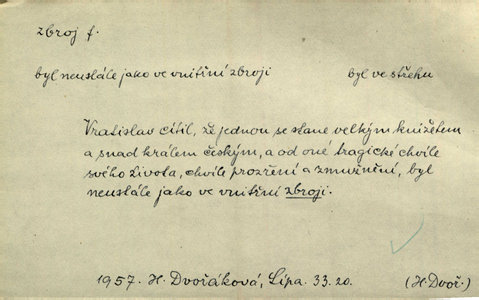 zbroj f.
byl neustále jako ve vnitřní zbroji byl ve střehu
Vratislav cítil, že jednou se stane velkým knížetem
a snad králem českým, a od oné tragické chvíle
svého života, chvíle prozření a zmužnění, byl
neustále jako ve vnitřní zbroji.
1957. H. Dvořáková, Lípa. 33.20. (H. Dvoř.)